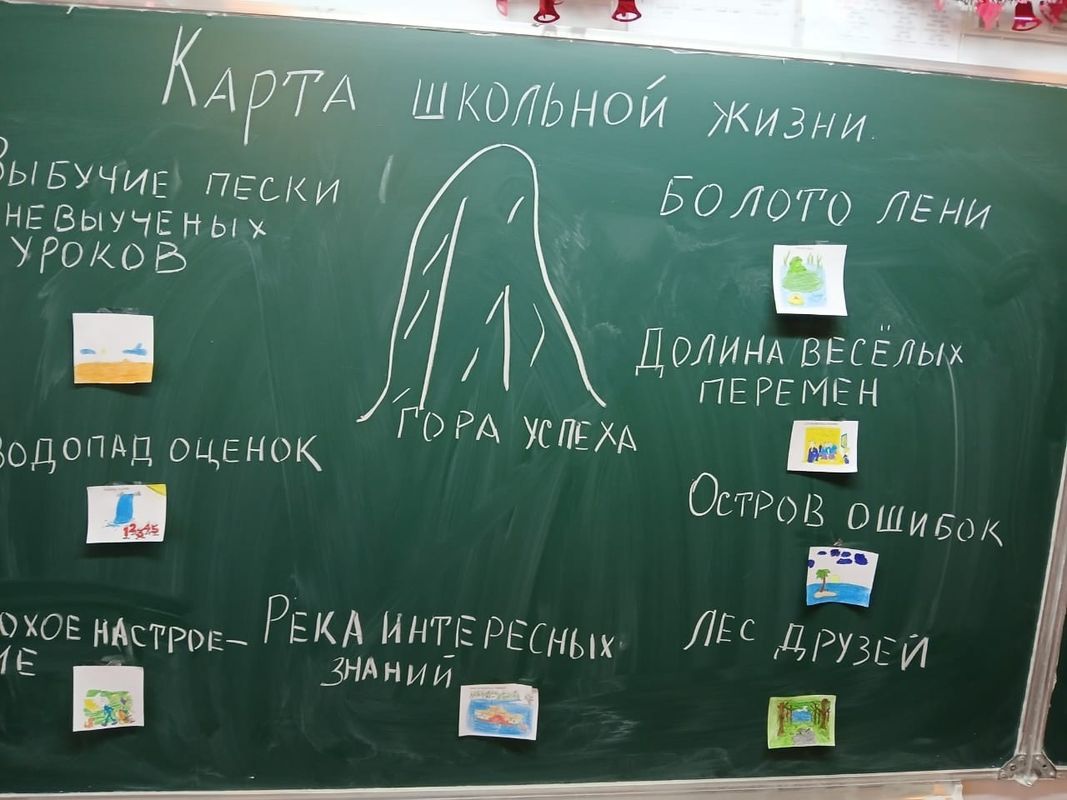 Карта школьной жизни.
Зыбучие пески
невыученых
уроков
Болото лени
Долина весёлых
перемен
Гора успеха
Водопад оценок
12345
Остров ошибок
Плохое настрое-
ние
Река интересных
знаний
Лес друзей